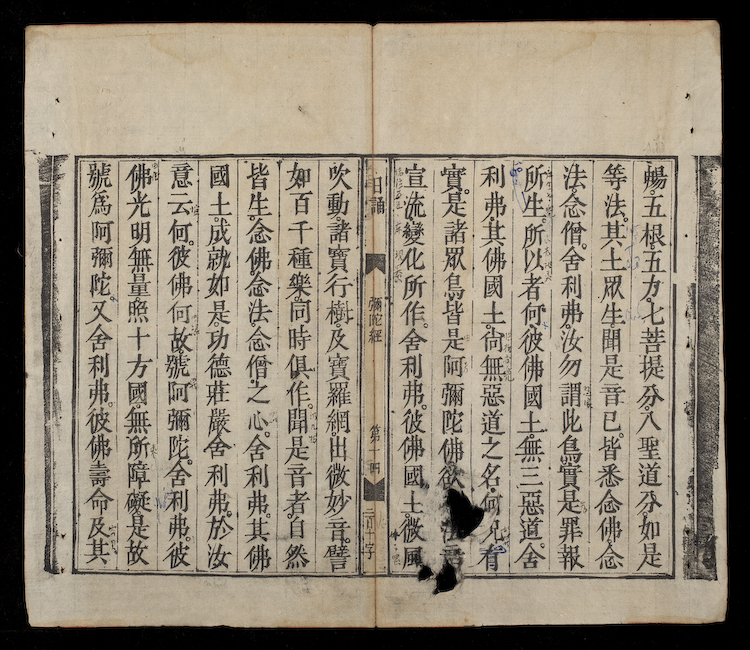 暢。五根。五力。七菩提分。八聖道分。如是
等法。其土眾生。聞是音已。皆悉念佛念
法念僧。舍利弗。汝勿謂此鳥實是罪報
所生。所以者何。彼佛國土。無三惡道。舍
利弗。其佛國土。尚無惡道之名。何況有
實。是諸眾鳥。皆是阿彌陀佛。欲
宣流。變化所作。舍利弗。彼佛國土。微風
日誦
彌陀經
第十
吹動。諸寶行樹。及寶羅網。出微妙音。譬
如百千種樂。同時俱作。聞是音者。自然
皆生。念佛念法念僧之心。舍利弗。其佛
國土。成就如是。功德莊嚴。舍利弗。於汝
意云何。彼佛何故。號阿彌陀。舍利弗。彼
佛光明無量。照十方國。無所障礙。是故
號為阿彌陀。又舍利弗。彼佛壽命。及其